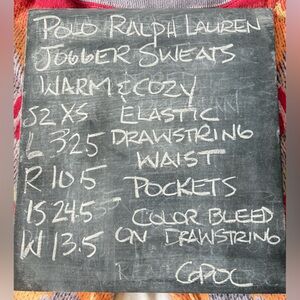 POLO RALPH LAUREN
JOGGER SWEATS
WARM & COZY
SZ XS ELASTIC
L 32.5 DRAWSTRING
WAIST
R 10.5 POCKETS
IS 24.5 COLOR BLEED
W 13.5 ON DRAWSTRING
GPOC